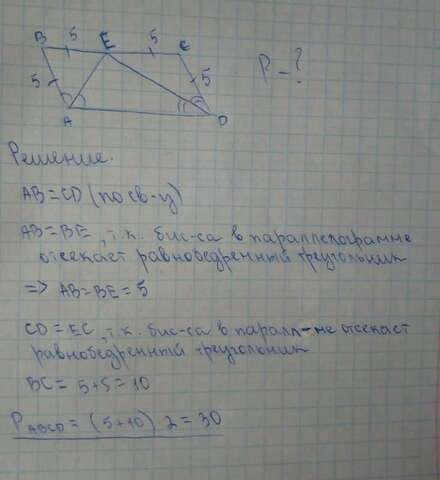 B 5 E 5 C
5 5 P – ?
A D
Решение.
AB = CD (по св-у)
AB = BE, т.к. бис-са в параллелограмме
отсекает равнобедренный треугольник
=> AB = BE = 5
CD = EC, т.к. бис-са в паралл-ме отсекает
равнобедренный треугольник
BC = 5+5 = 10
P ABCD = (5+10) 2 = 30